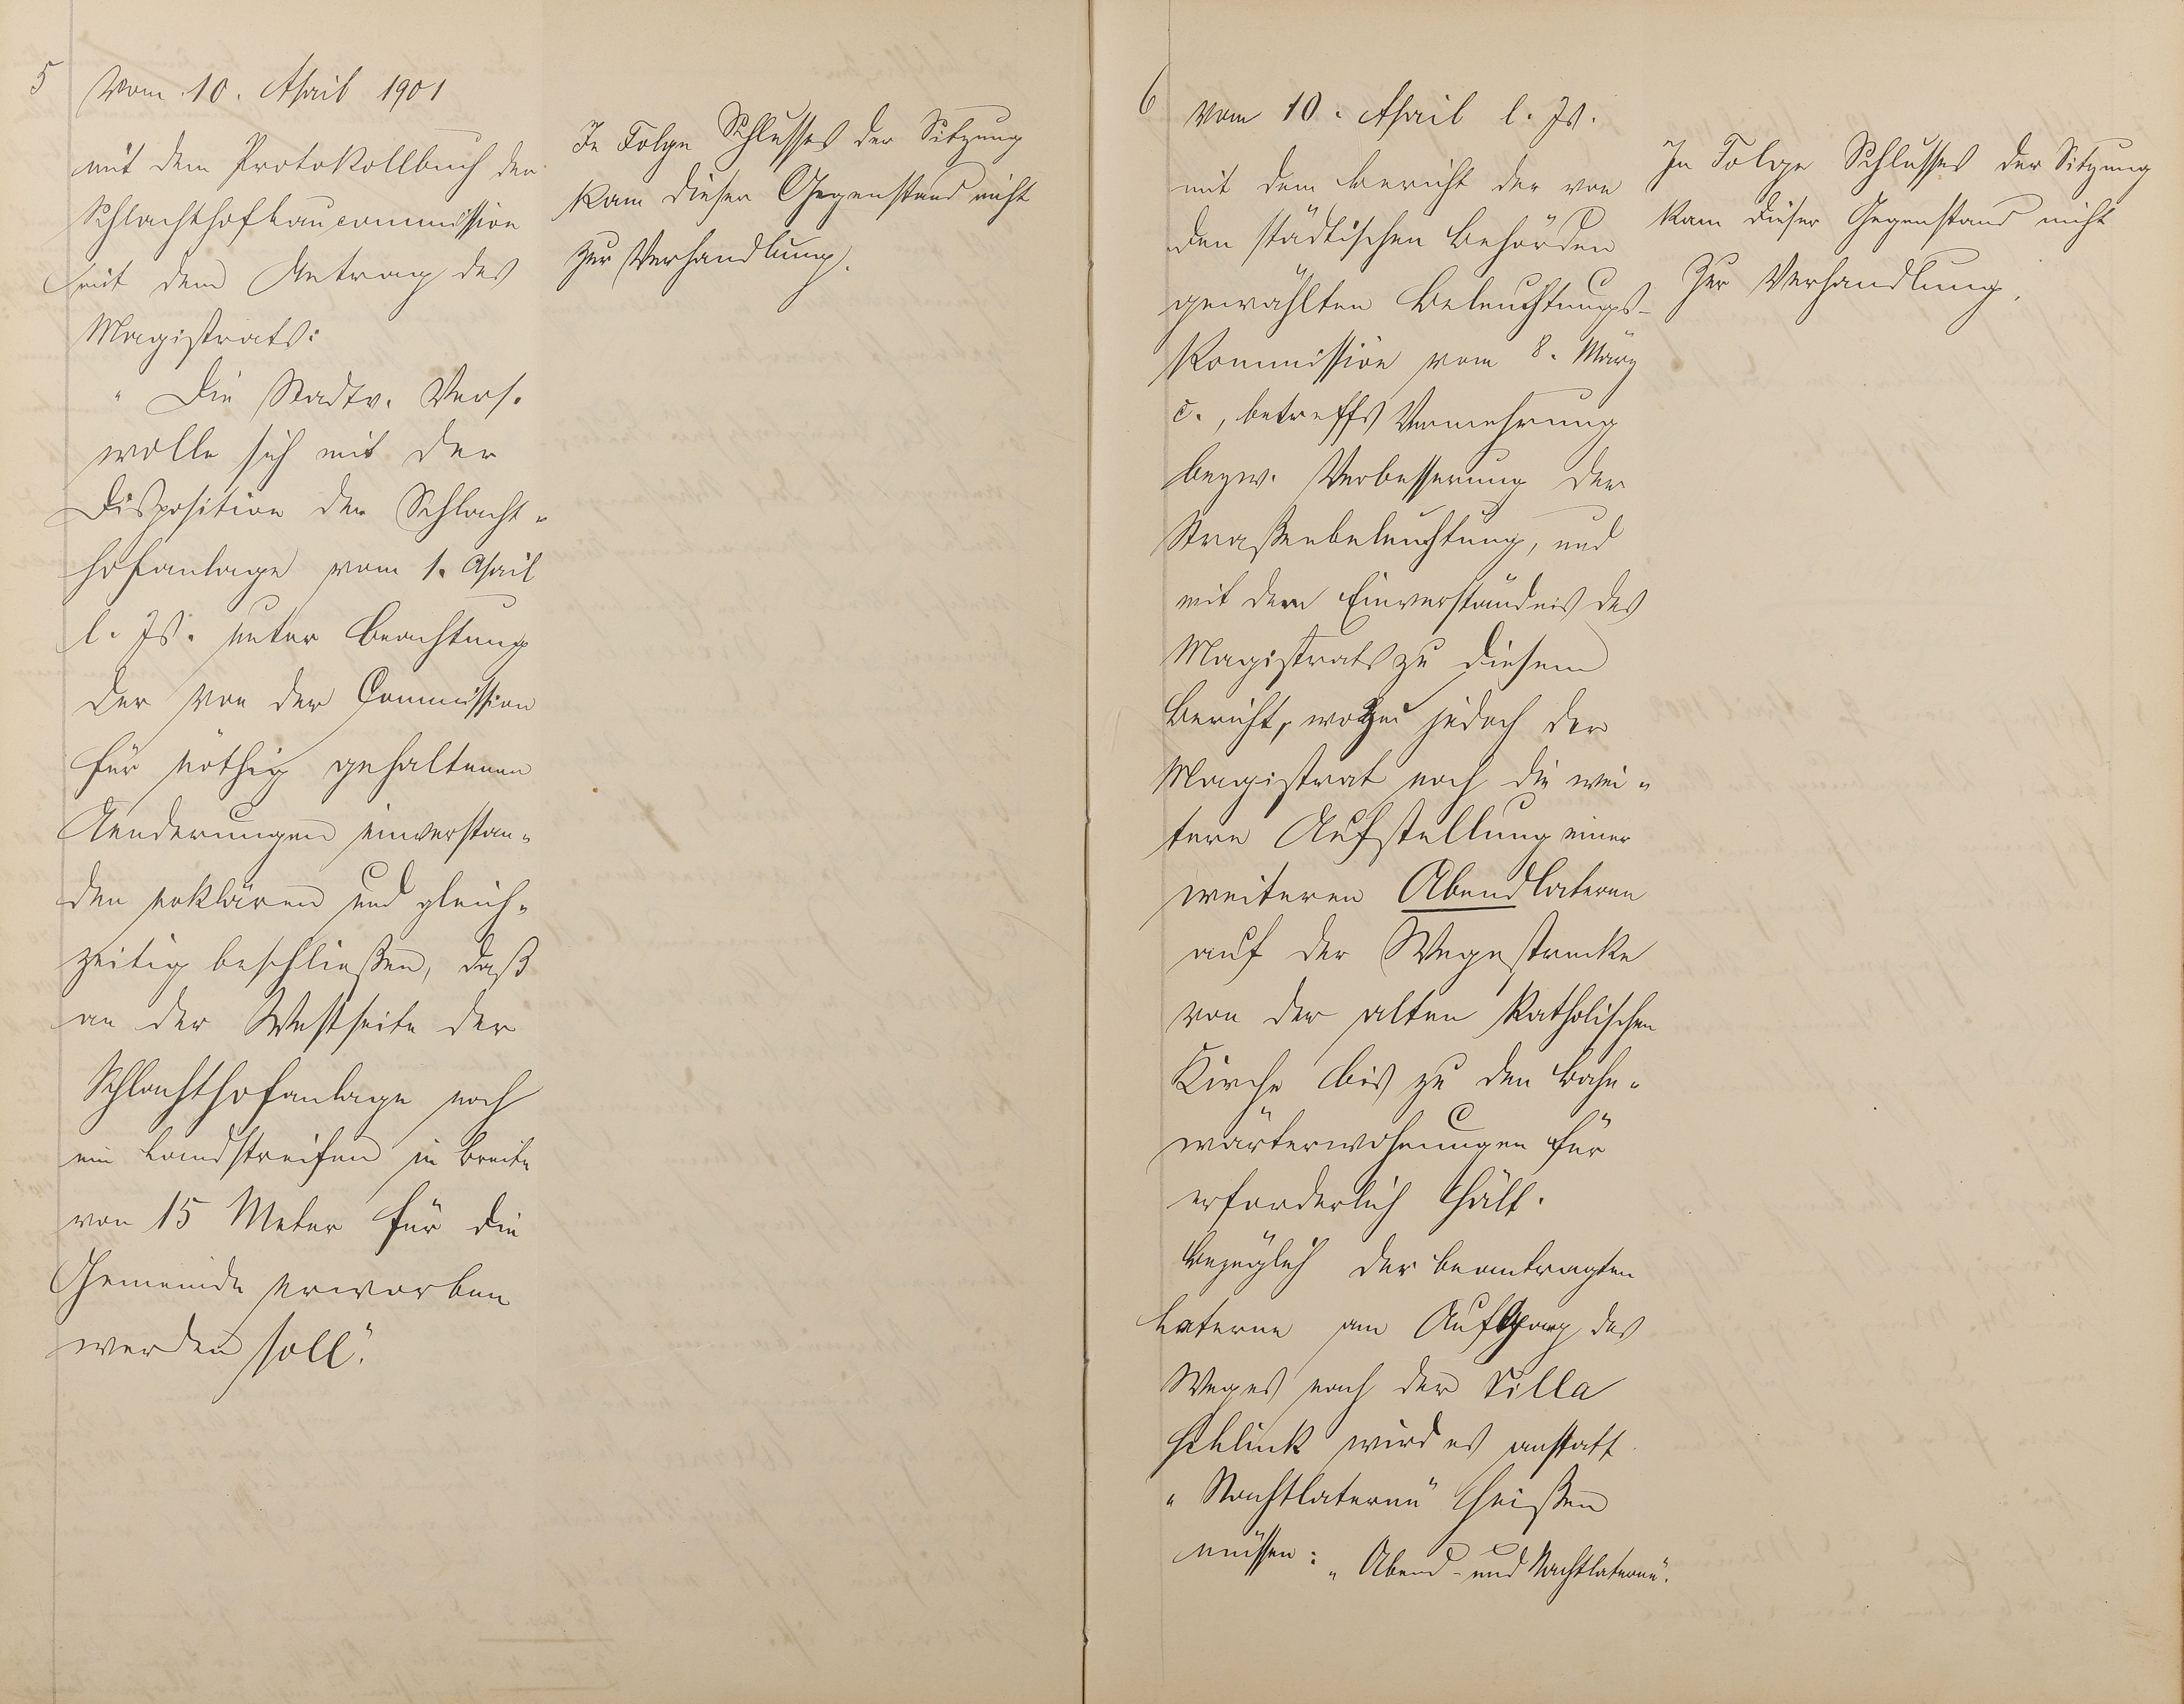 5
Vom 10. April 1901
mit dem Protokollbuch der
Schlachthofbaucommission
mit dem Antrag des
Magistrats:
„Die Stadtv. Vers.
wolle sich mit der
Disposition der Schlacht-
hofanlage vom 1. April
l. Js. unter Beachtung
der von der Commission
für nöthig gehaltenen
Aenderungen einverstan-
den erklären und gleich-
zeitig beschließen, daß
an der Westseite der
Schlachthofanlage noch
ein Landstreifen in Breite
von 15 Meter für die
Gemeinde erworben
werden soll."
In Folge Schlusses der Sitzung
kam dieser Gegenstand nicht
zur Verhandlung.
6
Vom 10. April l. Js.
mit dem Bericht der von
den städtischen Behörden
gewählten Beleuchtungs-
Kommission vom 8. März
c., betreffs Vermehrung
bezw. Verbesserung der
Straßenbeleuchtung, und
mit dem Einverständnis des
Magistrats zu diesem
Bericht, wozu jedoch der
Magistrat noch die wei-
tere Aufstellung einer
weiteren Abendlaterne
auf der Wegestrecke
von der alten katholischen
Kirche bis zu den Bahn-
wärterwohnungen für
erforderlich hält.
Bezüglich der beantragten
Laterne am Aufgang des
Weges nach der Villa
Schlink wird es anstatt
„Nachtlaterne" heißen
müssen: „Abend- und Nachtlaterne".
In Folge Schlusses der Sitzung
kam dieser Gegenstand nicht
zur Verhandlung.